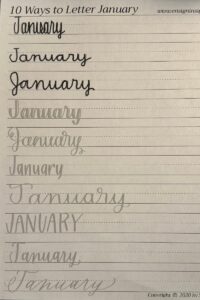 10 Ways to Letter January
January
January
January
January
January
January
January
JANUARY
January
January
Copyright © 2020